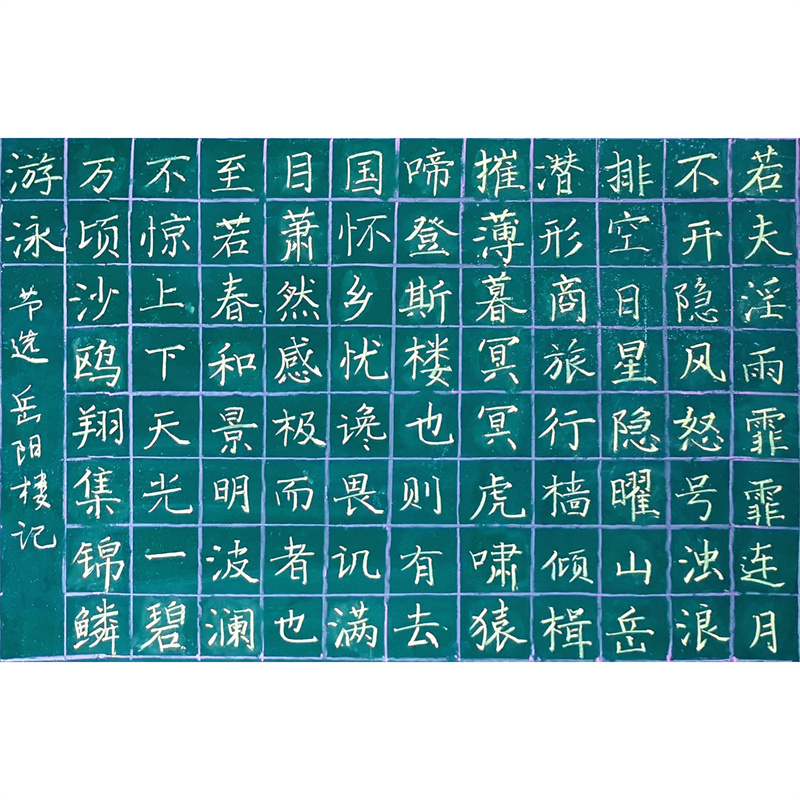 若夫淫雨霏霏连月
不开隐风怒号浊浪
排空日星隐曜山岳
潜形商旅行樯倾楫
摧薄暮冥冥虎啸猿
啼登斯楼也则有去
国怀乡忧谗畏讥满
目萧然感极而者也
至若春和景明波澜
不惊上下天光一碧
万顷沙鸥翔集锦鳞
游泳
节选岳阳楼记